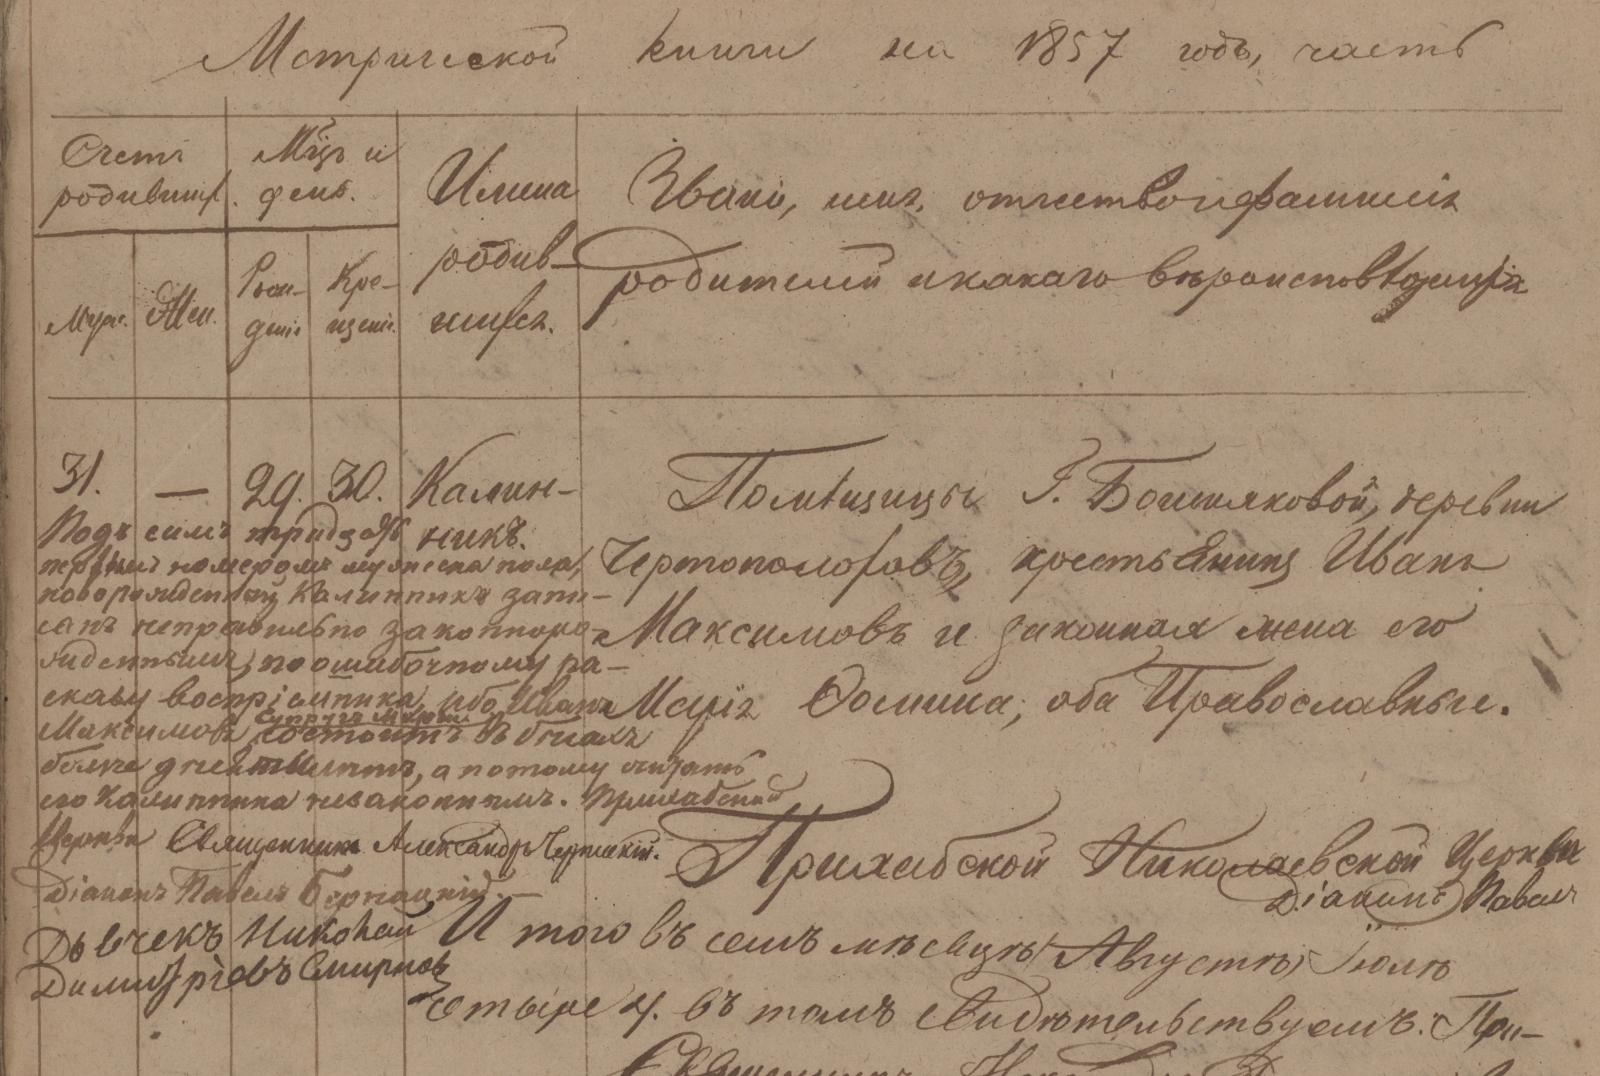 Метрической книги на 1857 годъ, часть
Счетъ
родивших.
Мѣц и
день.
Имена
родив-
шихся.
Званіе, имя, отчество и фамилія
родителей и какаго вѣроисповѣданія
Муж.
Жен.
Рож-
денія
Кре-
щенія.
31. — 29. 30. Калин-
никъ.
Помѣщицы Г. Большяковой, деревни
Чертопологовъ, крестьянинъ Иванъ
Максимовъ и законная жена его
Марія Фомина, оба Православные.
Подъ симъ тридцать
первымъ номеромъ мужеска пола,
новорожденный Калинникъ запи-
санъ неправильно законноро-
жденнымъ, по ошибочному ра-
сказу воспріемника, ибо Иванъ
Максимовъ супругъ Маріи состоитъ въ бѣгахъ
болѣе лѣтъ, а потому считать
его Калинника незаконнымъ. Прихабской
Церкви Священникъ Александръ
Діаконъ Павелъ
Дьячекъ Николай
Димитріевъ Смирновъ
Прихабской Николаевской Церкви
Діаконъ Павелъ
И того въ семъ мѣсяцѣ Августѣ Іюлѣ
четыре 4. въ томъ свидѣтельствуемъ. При-
Священникъ